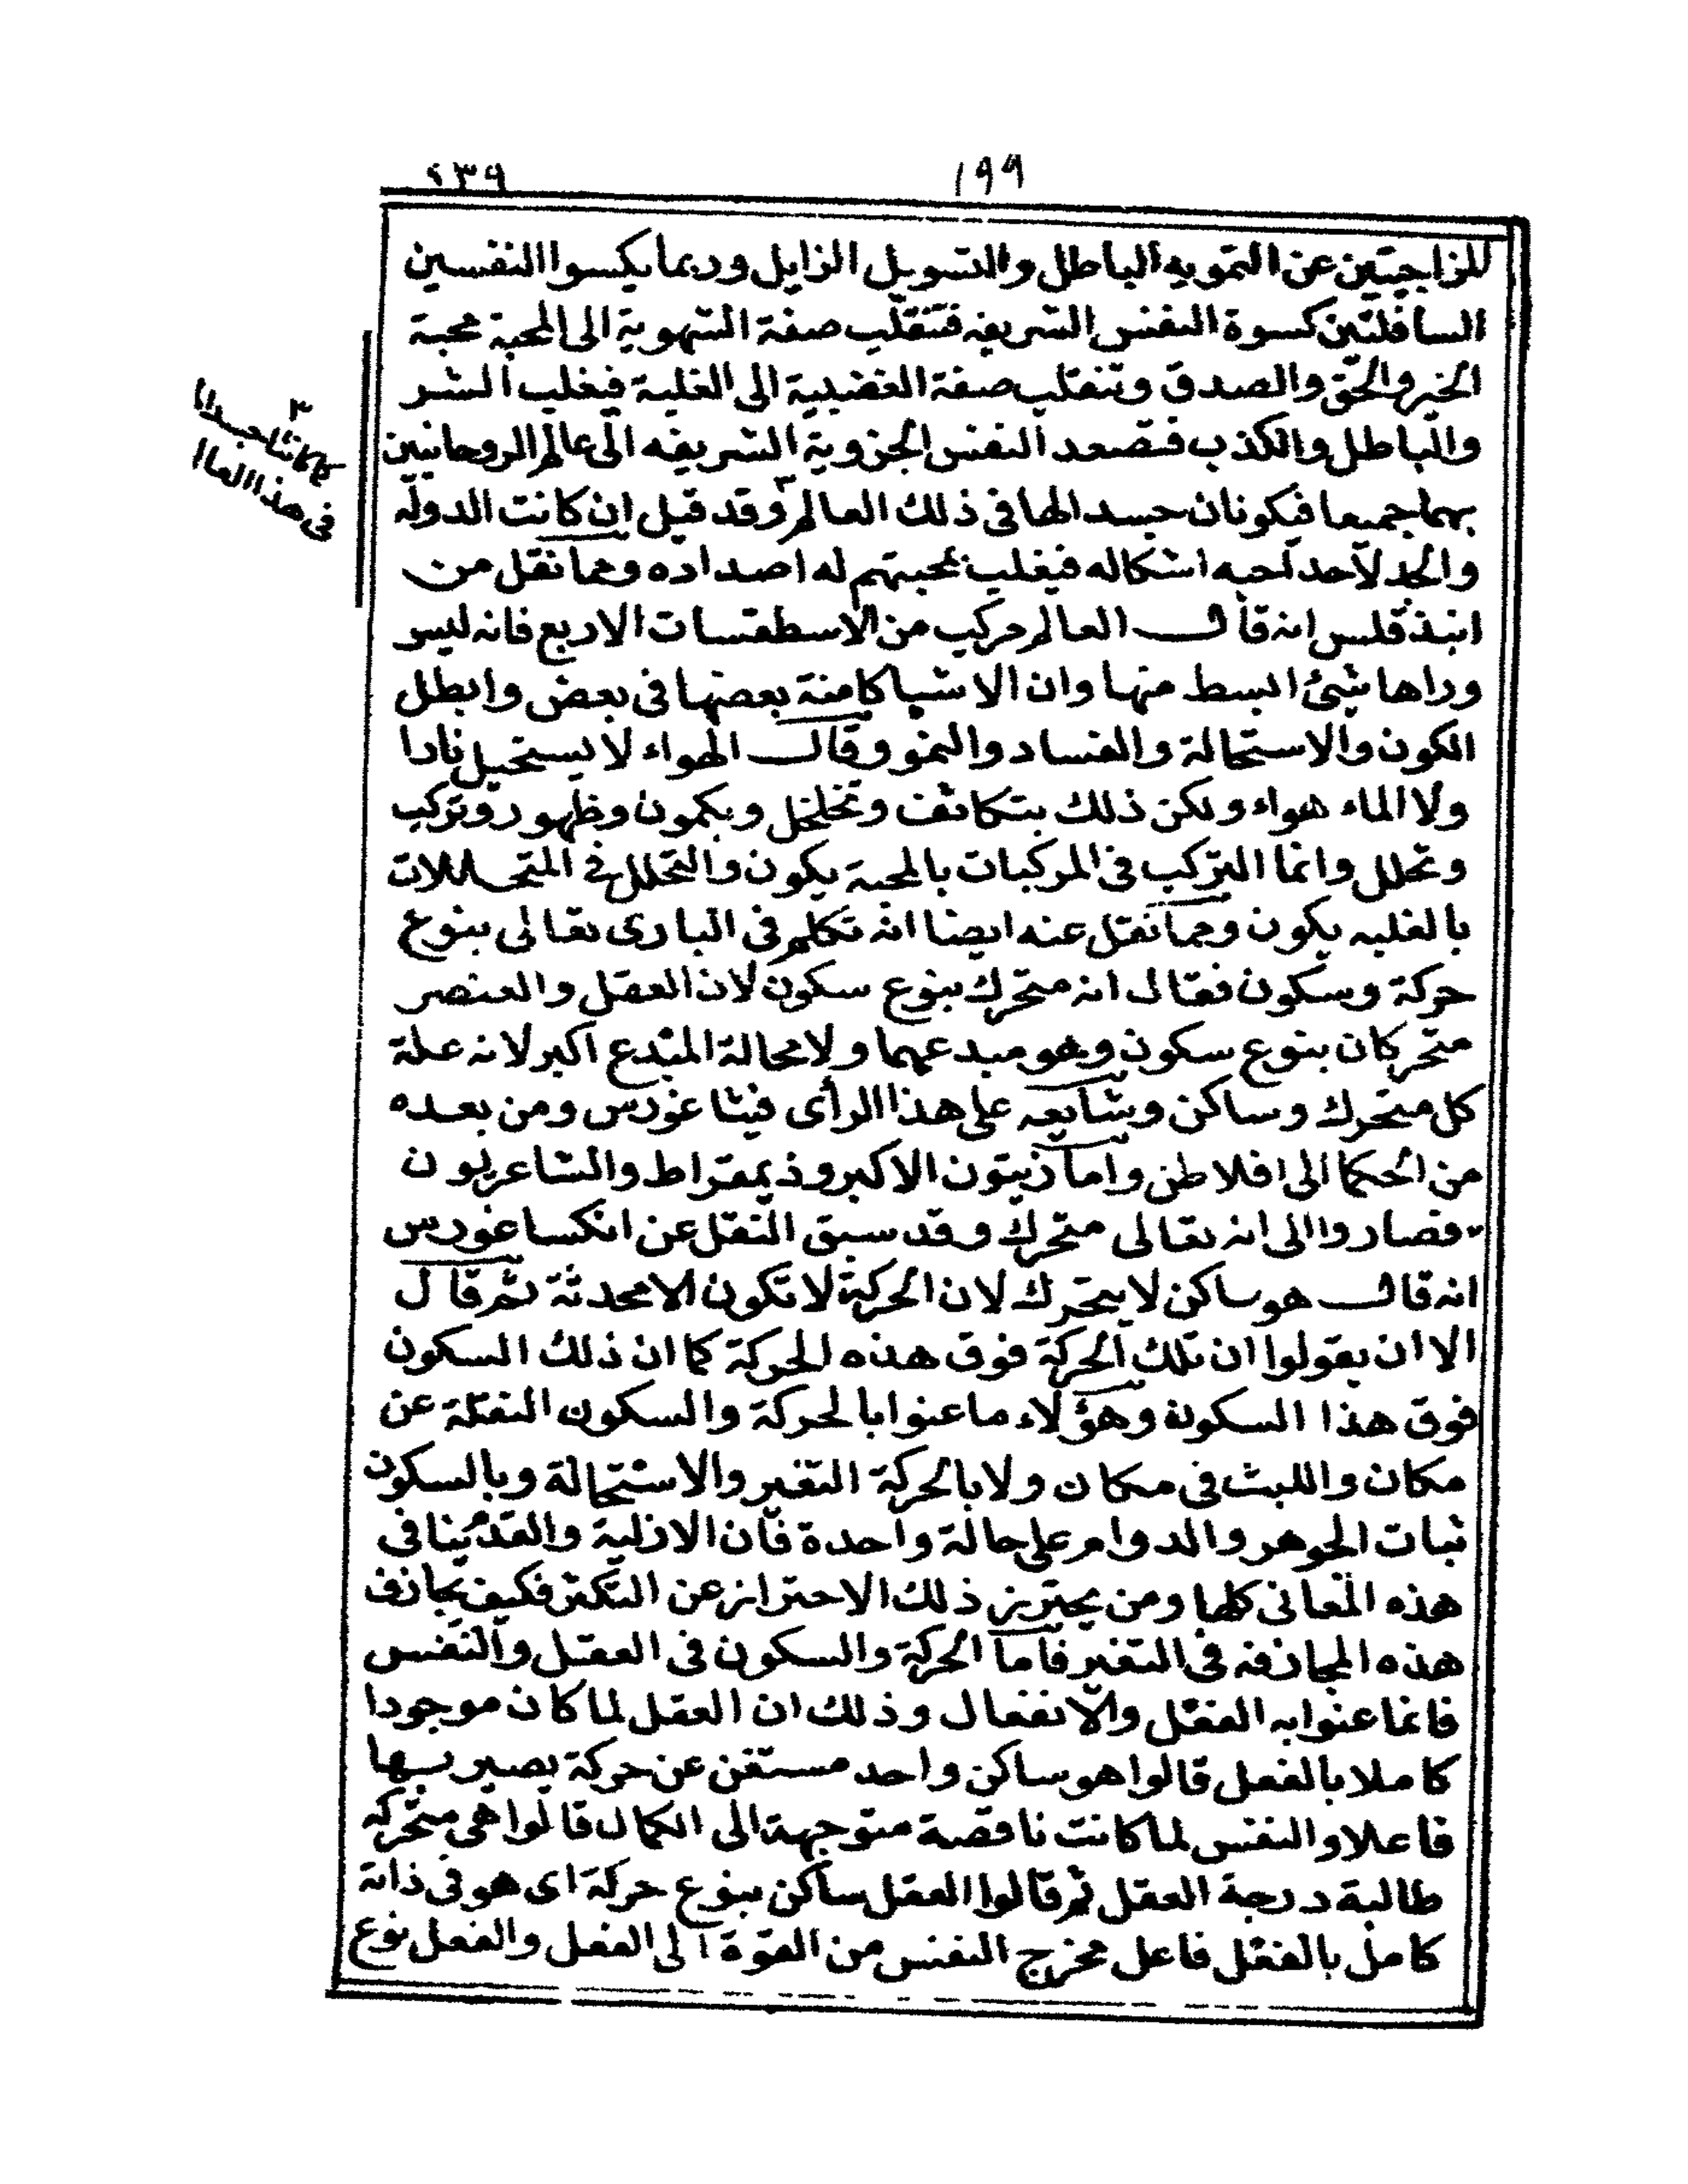 ١٩٩
١٣٩
للمزاجيتين عن التمويه الباطل والتسويل الزايل وربما يكسوا النفسين
السافلتين كسوة النفس الشريفه فتنقلب صفة الشهوية الى المحبة محبة
الخير والحق والصدق وتنقلب صفة الغضبية الى الغلبة فيغلب الشر
والباطل والكذب فتصعد النفس الجزوية الشريفه الى عالم الروحانيين
بهما جميعا فيكونان جسد الها فى ذلك العالم ٣ وقد قيل ان كانت الدوله
والجد لاحد احبه اشكاله فيغلب بمحبتهم له اضداده ومما نقل من
انبذقلس انه قال العالم مركب من الاسطقسات الاربع فانه ليس
وراها شئ ابسط منها وان الاشيا كامنة بعضها فى بعض وابطل
الكون والاستحالة والفساد والنمو وقال الهواء لا يستحيل نارا
ولا الماء هواء ولكن ذلك بتكاثف وتخلخل وبكمون وظهور وتركيب
وتحلل وانما التركيب فى المركبات بالمحبة يكون والتحلل فى المتحللات
بالغلبه يكون ومما نقل عنه ايضا انه تكلم فى البارى تعالى بنوع
حركة وسكون فقال انه متحرك بنوع سكون لان العقل والعنصر
متحركان بنوع سكون وهو مبدعهما ولا محالة المبدع اكبر لانه علة
كل متحرك وساكن وشايعه على هذا الراى فيثاغورس ومن بعده
من الحكما الى افلاطن واما زيتون الاكبر وذيمقراط والشاعريون
فصاروا الى انه تعالى متحرك وقد سبق النقل عن انكساغورس
انه قال هو ساكن لا يتحرك لان الحركة لا تكون الا محدثة ثم قال
الا ان يقولوا ان تلك الحركة فوق هذه الحركة كما ان ذلك السكون
فوق هذا السكون وهؤلاء ما عنوا بالحركة والسكون النقلة عن
مكان واللبث فى مكان ولا بالحركة التغير والاستحالة وبالسكون
ثبات الجوهر والدوام على حالة واحدة فان الازلية والقدم ينافى
هذه المعانى كلها ومن يحترز ذلك الاحتراز عن التكثر فكيف يجازف
هذه المجازفه فى التغير فاما الحركة والسكون فى العقل والنفس
فانما عنوا به الفعل والانفعال وذلك ان العقل لما كان موجودا
كاملا بالفعل قالوا هو ساكن واحد مستغن عن حركة يصير بها
فاعلا والنفس لما كانت ناقصة متوجهة الى الكمال قالوا هى متحركه
طالبة درجة العقل ثم قالوا العقل ساكن بنوع حركة اى هو فى ذاته
كامل بالفعل فاعل مخرج النفس من القوة الى الفعل والفعل نوع
٣
كما كانتا جسدا لها
فى هذا العالم